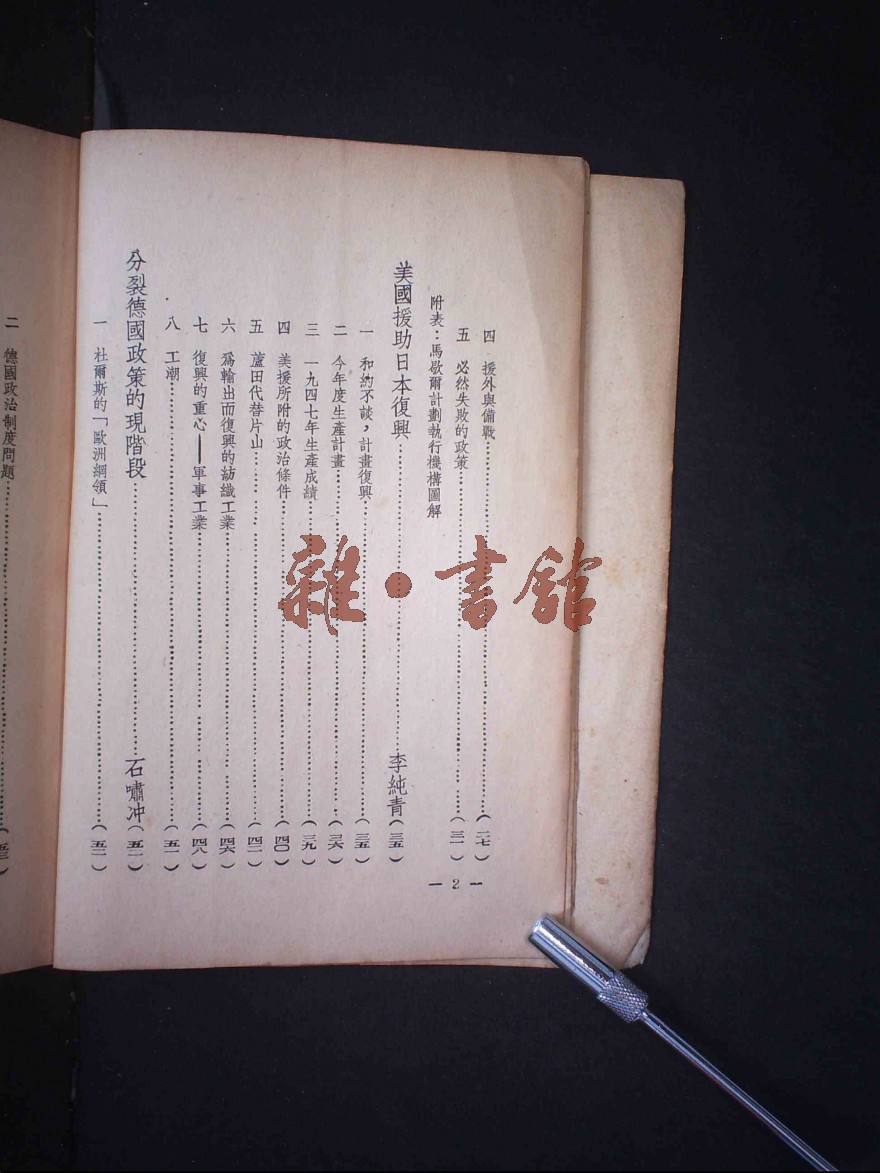 四　援外與備戰……(二七)
五　必然失敗的政策……(三一)
附表：馬歇爾計劃執行機構圖解
美國援助日本復興……李純青(三五)
一　和約不談，計畫復興……(三五)
二　今年度生產計畫……(三六)
三　一九四七年生產成績……(三九)
四　美援所附的政治條件……(四〇)
五　蘆田代替片山……(四二)
六　爲輸出而復興的紡織工業……(四六)
七　復興的重心——軍事工業……(四八)
八　工潮……(五一)
分裂德國政策的現階段……石嘯冲(五二)
一　杜爾斯的「歐洲綱領」……(五二)
二　德國政治制度問題……
— 2 —
雜·書館